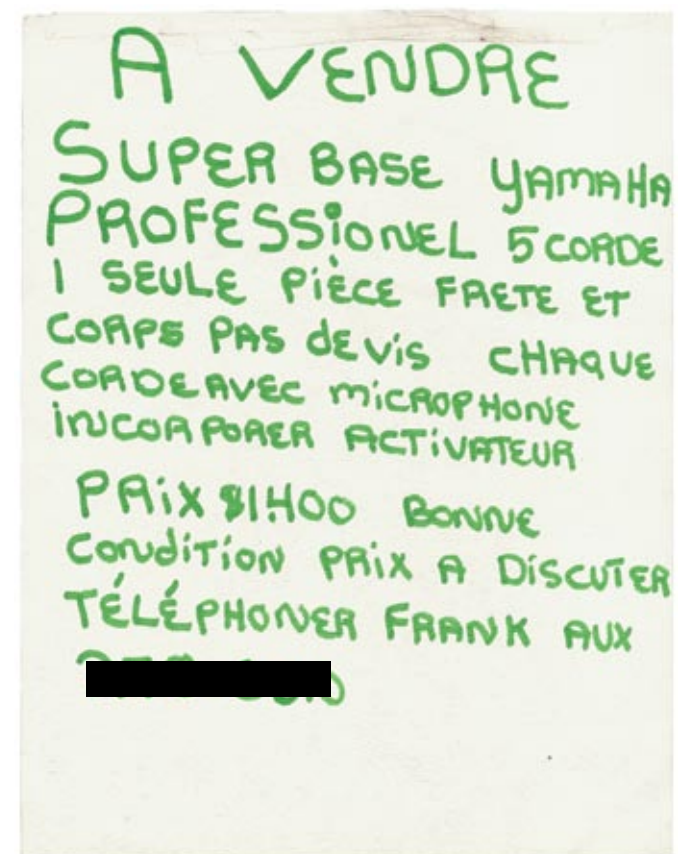 A VENDRE
SUPER BASE YAMAHA
PROFESSIONEL 5 CORDE
1 SEULE PIÈCE FRETE ET
CORPS PAS dEVIS CHAQUE
CORDE AVEC MICROPHONE
INCORPORER ACTIVATEUR
PRIX $1400 BONNE
CONDITION PRIX A DISCUTER
TÉLÉPHONER FRANK AUX